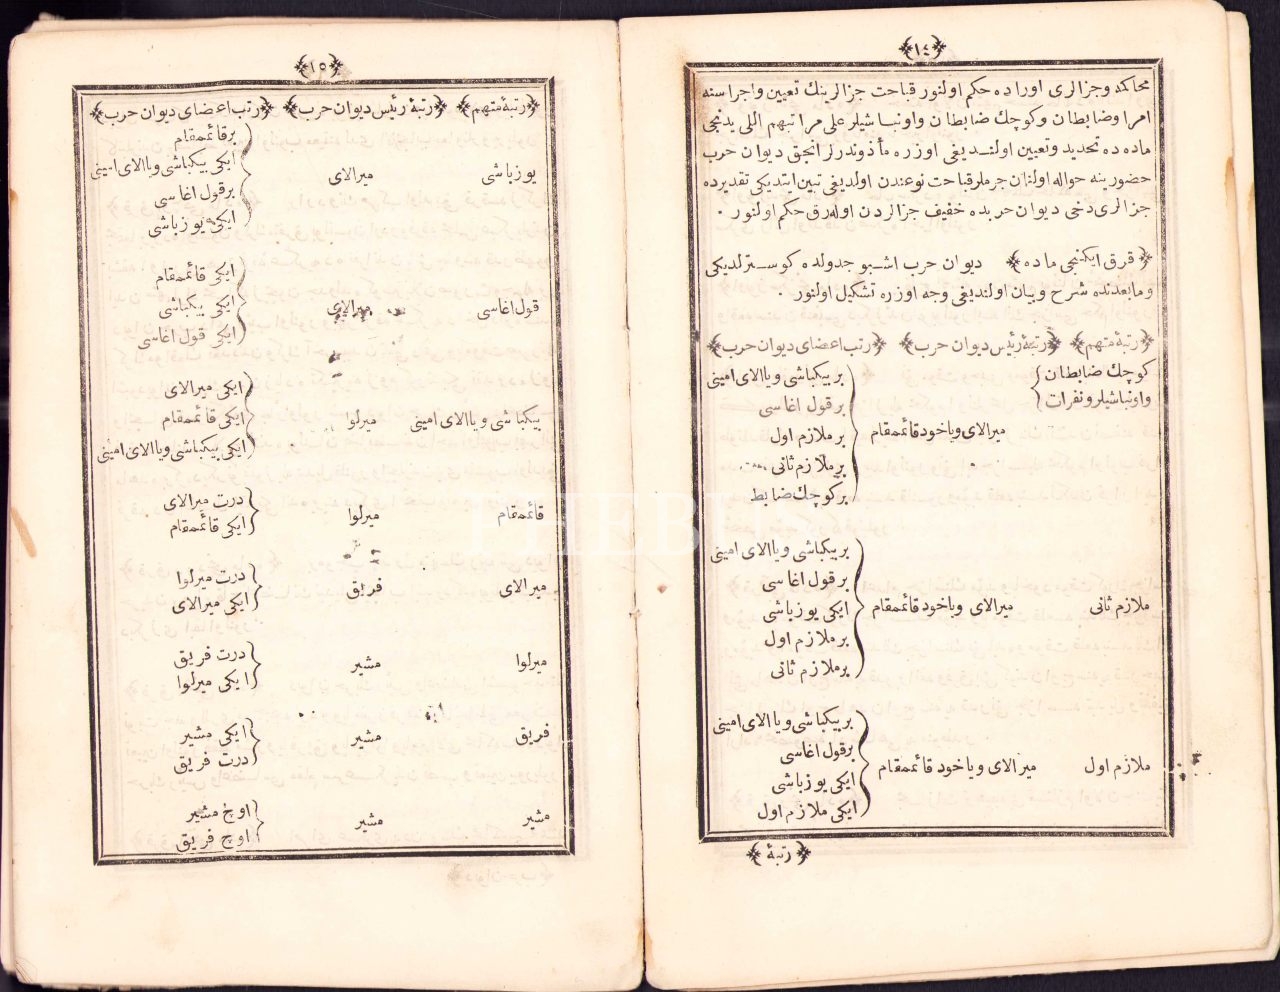 ﴿١٤﴾
محاكمه وجزالرى اوراده حكم اولنور قباحت جزالرينك تعيين واجراسنه
امرا وضابطان وكوچك ضابطان واونباشيلر على مراتبهم اللى يدنجى
ماده ده تحديد وتعيين اولنديغى اوزره مأذوندرلر انجق ديوان حرب
حضورينه حواله اولنان جرملر قباحت نوعندن اولديغى تبين ايتديكى تقديرده
جزالرى دخى ديوان حربده خفيف جزالردن اوله رق حكم اولنور ٠
﴿ قرق ايكنجى ماده ﴾ ديوان حرب اشبو جدولده كوسترلديكى
ومابعدنده شرح وبيان اولنديغى وجه اوزره تشكيل اولنور ٠
﴿رتبۀ متهم﴾ ﴿رتبۀ رئيس ديوان حرب﴾ ﴿رتب اعضاى ديوان حرب﴾
كوچك ضابطان
واونباشيلر ونفرات
ميرالاى وياخود قائممقام
بر بيكباشى ويا الاى امينى
بر قول اغاسى
بر ملازم اول
بر ملازم ثانى
بر كوچك ضابط
ملازم ثانى
ميرالاى وياخود قائممقام
بر بيكباشى ويا الاى امينى
بر قول اغاسى
ايكى يوزباشى
بر ملازم اول
بر ملازم ثانى
ملازم اول
ميرالاى وياخود قائممقام
بر بيكباشى ويا الاى امينى
بر قول اغاسى
ايكى يوزباشى
ايكى ملازم اول
﴿ رتبۀ ﴾
﴿١٥﴾
﴿رتبۀ متهم﴾ ﴿رتبۀ رئيس ديوان حرب﴾ ﴿رتب اعضاى ديوان حرب﴾
يوزباشى
ميرالاى
بر قائممقام
ايكى بيكباشى ويا الاى امينى
بر قول اغاسى
ايكى يوزباشى
قول اغاسى
ميرالاى
ايكى قائممقام
ايكى بيكباشى
ايكى قول اغاسى
بيكباشى ويا الاى امينى
ميرلوا
ايكى ميرالاى
ايكى قائممقام
ايكى بيكباشى ويا الاى امينى
قائممقام
ميرلوا
درت ميرالاى
ايكى قائممقام
ميرالاى
فريق
درت ميرلوا
ايكى ميرالاى
ميرلوا
مشير
درت فريق
ايكى ميرلوا
فريق
مشير
ايكى مشير
درت فريق
مشير
مشير
اوچ مشير
اوچ فريق